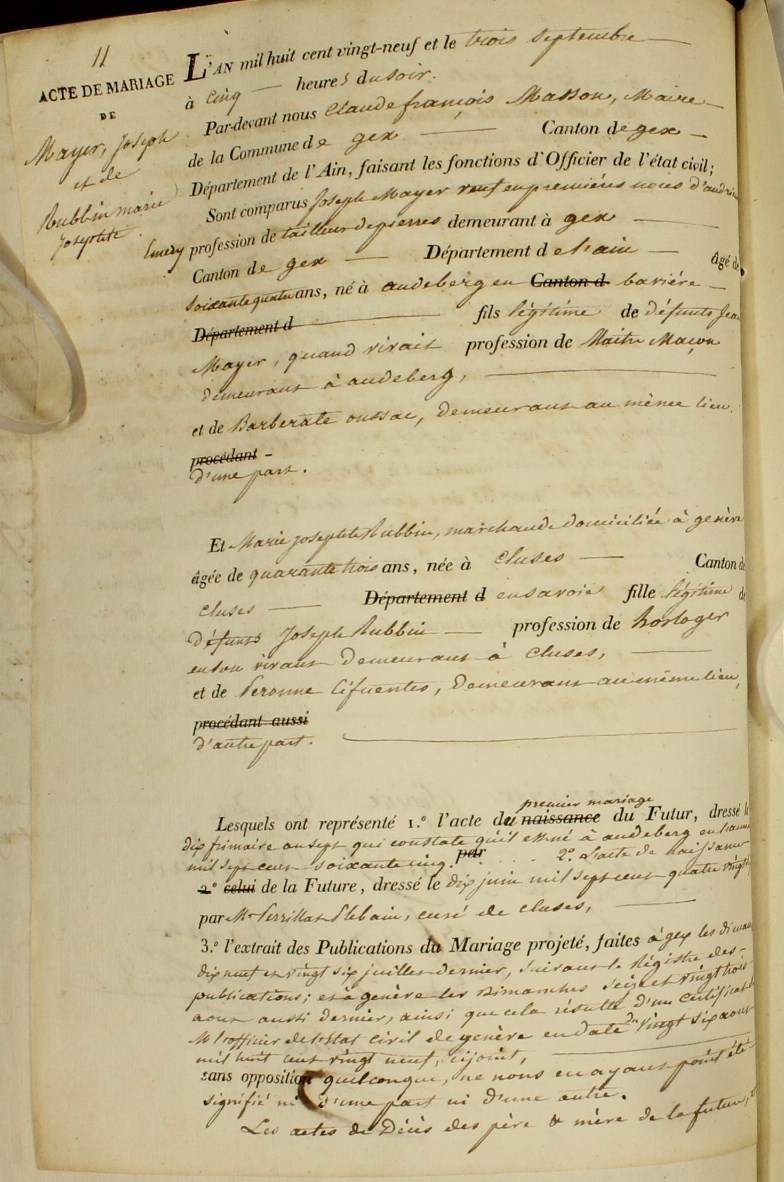 11
ACTE DE MARIAGE
DE
Mayer, Joseph
et de
Rubbin marie
Josephte.
L'AN mil huit cent vingt-neuf et le trois septembre
à cinq heures du soir.
Par-devant nous Claude françois Masson, Maire
de la Commune de gex Canton de gex
Département de l'Ain, faisant les fonctions d'Officier de l'état civil;
Sont comparus Joseph Mayer veuf en premières noces d'andrine
Emery profession de tailleur de pierres demeurant à gex
Canton de gex Département de l'ain âgé de
soixante quatre ans, né à audeberg en Canton d bavière
Département d fils légitime de défunts Jean
Mayer, quand vivait profession de Maitre Maçon
demeurant à audeberg,
et de Barberate oussac, demeurant au même lieu.
procédant
d'une part.
Et Marie josephte Rubbin, marchande domiciliée à genève
âgée de quarante trois ans, née à Cluses Canton de
Cluses Département d en savoie fille légitime de
défunts Joseph Rubbin profession de horloger
en son vivant demeurant à Cluses,
et de Peronne Cifuentes, demeurant au même lieu,
procédant aussi
d'autre part.
Lesquels ont représenté 1.° l'acte du naissance premier mariage du Futur, dressé le
dix frimaire an sept qui constate qu'il est né à audeberg en l'année
mil sept cent soixante cinq. par 2.° L'acte de naissance
2.° celui de la Future, dressé le dix juin mil sept cent quatre vingt
par Mr Perrillat Plebain, curé de cluses,
3.° l'extrait des Publications du Mariage projeté, faites à gex les dimanches
dix neuf et vingt six juillet dernier, suivant le Régistre des
publications; et à genève les dimanches seize et vingt trois
aout aussi dernier, ainsi que cela résulte d'un certificat de
Mr l'officier de l'état civil de genève en date du vingt six aout
mil huit cent vingt neuf, cijoint,
sans opposition quelconque, ne nous en ayant point été
signifié ni d'une part ni d'une autre.
Les actes de Décès des père & mère de la future,